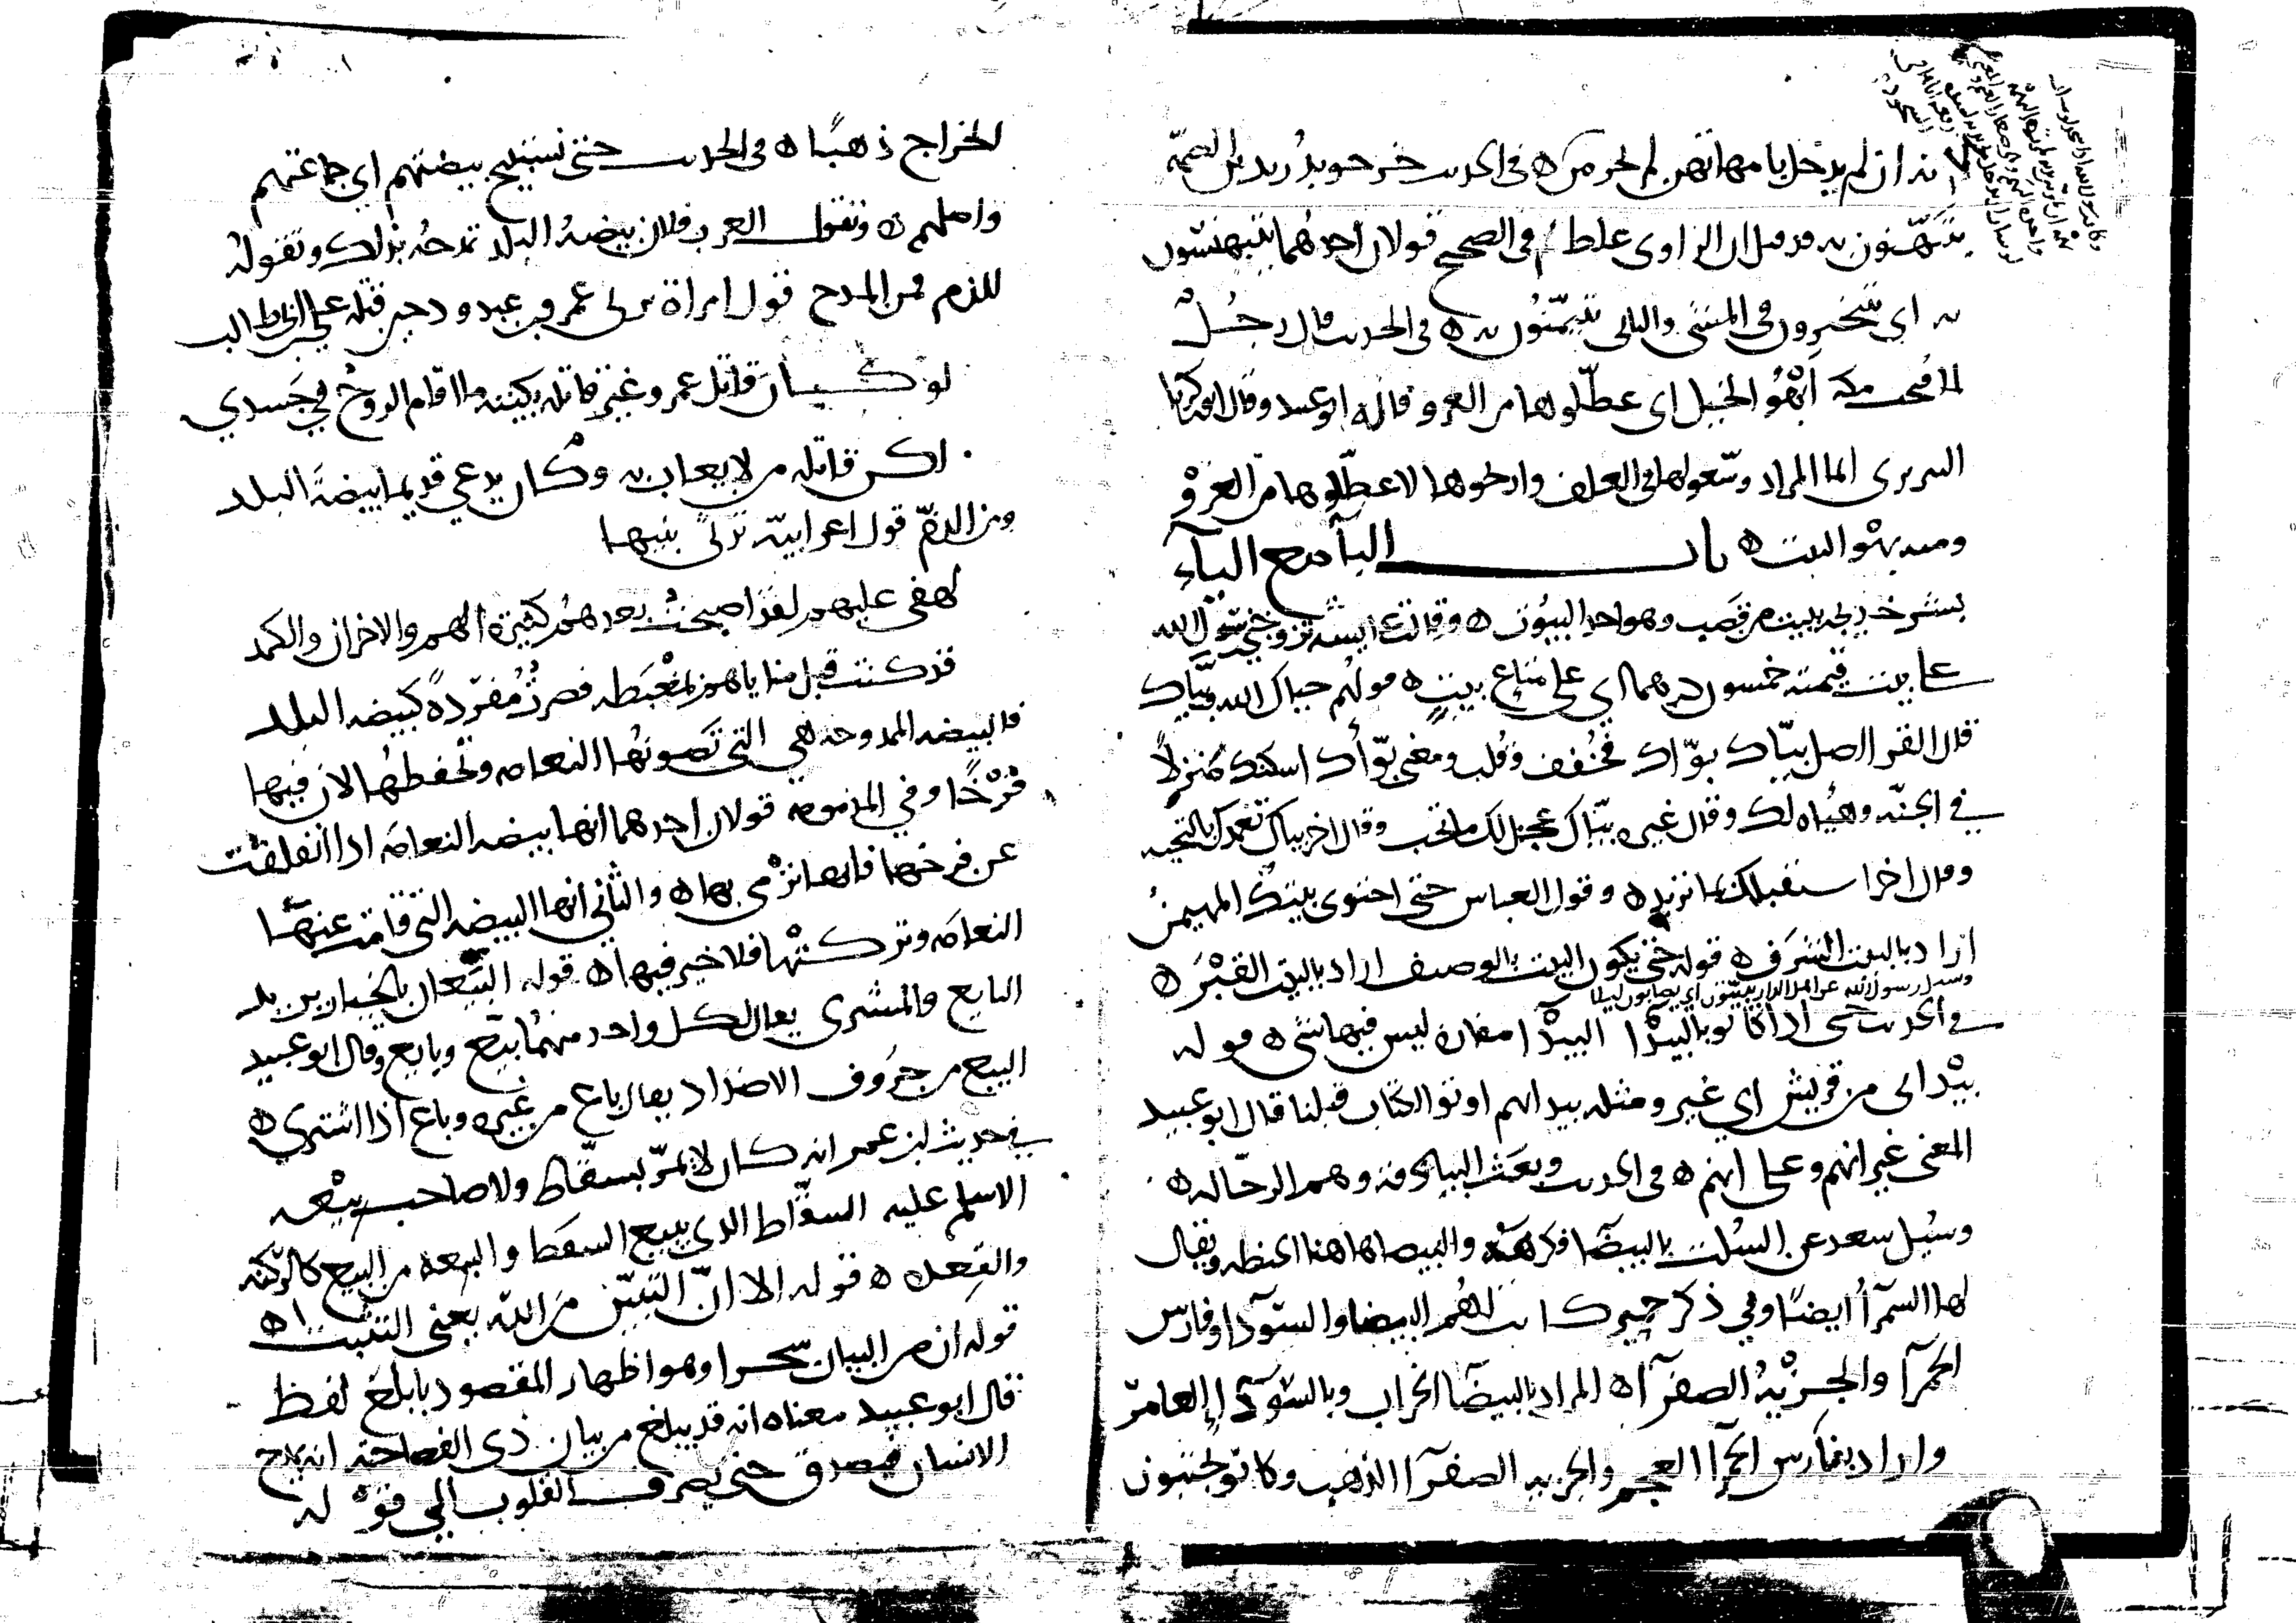 به ان لم يدخل بامهاتهن لم يحرمن ه في الحديث خرجو بدريد بن الصمة
يتبهنون به قد قيل ان الراوي غلط ثم في الصحيح قولان احدهما يتبهنسون
به اي يتبخترون في المشي والثاني يتيمنون به ه في الحديث قال رجل
لما فتحت مكة ابهو الخيل اي عطلوها من الغزو قاله ابو عبيد وقال ابو بكر بن
السري انما المراد وسعو لها في العلف واريحوها لا عطلوها من الغزو
ومنه بهو البيت ه باب الباء مع الياء
بشر خديجة ببيت من قصب وهو احد البيوت ه وقالت عايشة تزوجني رسول الله
على بيت قيمته خمسون درهما اي على متاع بيت ه قولهم حياك الله وبياك
قال الفرا اصل بياك بواك فخفف وقلب ومعنى بواك اسكنك منزلا
في الجنة وهياه لك وقال غيره بياك عجل لك ما تحب وقال اخر بياك تعمدك بالتحية
وقال اخر استقبلك بما تريد ه وقول العباس حتى احتوى بيتك المهيمن
اراد بالبيت الشرف ه قوله حتى يكون البيت بالوصيف اراد بالبيت القبر ه
وسيل رسول الله عن اهل الدار يبيتون اي يصابون ليلا
في الحديث حتى اذا كانو بالبيدا البيدا مفازه ليس فيها شي ه قوله
بيد اني من قريش اي غير ومثله بيد انهم اوتو الكتاب قبلنا قال ابو عبيد
المعنى غير انهم وعلى انهم ه في الحديث وبعث البياذقة وهم الرجالة ه
وسيل سعد عن السلت بالبيضا فكرهه والبيضا هاهنا الحنطة ويقال
لها السمرا ايضا وفي ذكر حمير كانت لهم البيضا والسودا وفارس
الحمرا والجزية الصفرا ه المراد بالبيضا الخراب وبالسودا العامر
واراد بفارس الحمرا العجم والجزيه الصفرا الذهب وكانو يجتبون
الخراج ذهبا ه في الحديث حتى نستبيح بيضتهم اي جماعتهم
واصلهم ه وتقول العرب فلان بيضة البلد تمدحه بذلك وتقوله
للذم فمن المدح قول امراة ترثي عمرو بن عبدود حين قتله علي بن ابي طالب
لو كان قاتل عمرو غير قاتله بكيته ما اقام الروح في جسدي
لكن قاتله من لا يعاب به وكان يدعى قديما بيضة البلد
ومن الذم قول اعرابية ترثي بنيها
لهفي عليهم لقد اصبحت بعدهم كثيرة الهم والاحزان والكمد
قد كنت قبل مناياهم بمغبطة فصرت مفردة كبيضة البلد
فالبيضة الممدوحة هي التي تصونها النعامة وتحفظها لان فيها
فرخا وفي المذمومة قولان احدهما انها بيضة النعامة اذا انفلقت
عن فرخها فانها ترمي بها ه والثاني انها البيضة التي قامت عنها
النعامة وتركتها فلا خير فيها ه قوله البيعان بالخيار يريد
البايع والمشتري يقال لكل واحد منهما بيع وبايع وقال ابو عبيد
البيع من حروف الاضداد يقال باع من غيره وباع اذا اشترى ه
في حديث ابن عمر انه كان لا يمر بسقاط ولا صاحب بيعة
الا سلم عليه السقاط الذي يبيع السقط والبيعة من البيع كالركبة
والقعدة ه قوله الا ان التبين من الله يعني التثبت ه
قوله ان من البيان سحرا وهو اظهار المقصود بابلغ لفظ
قال ابو عبيد معناه انه قد يبلغ من بيان ذي الفصاحة انه يمدح
الانسان فيصدق حتى يصرف القلوب الى قوله